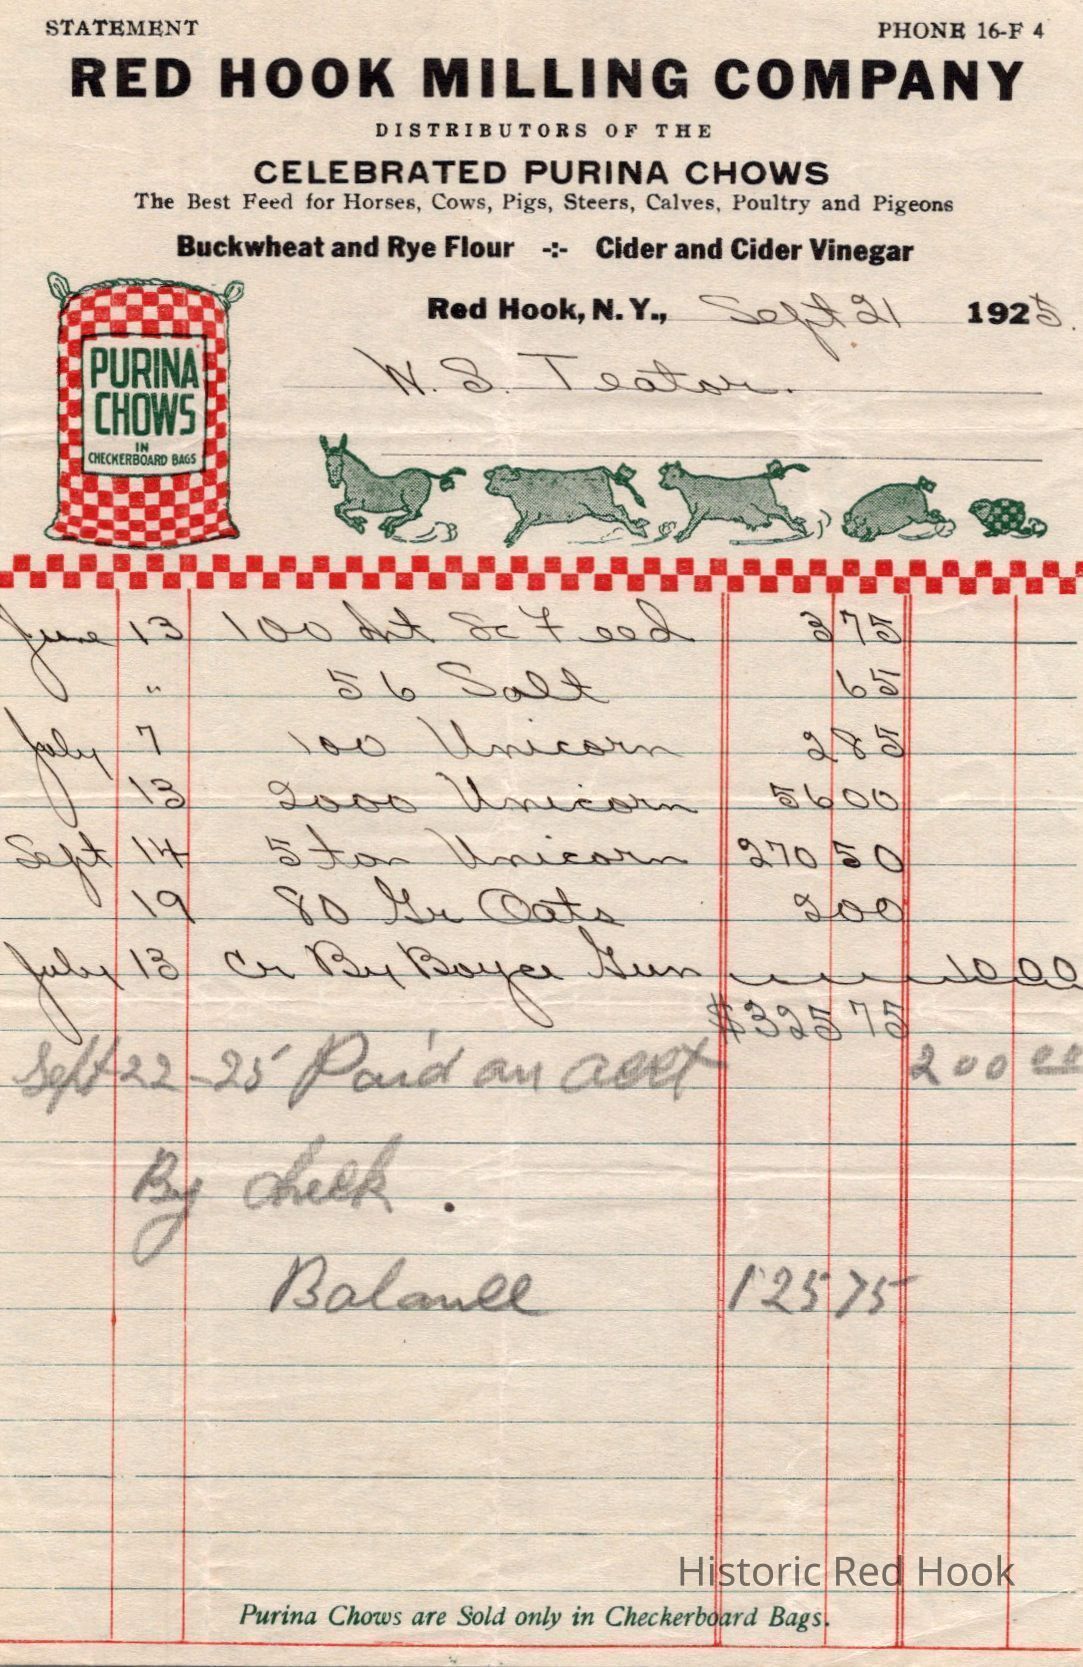 STATEMENT PHONE 16-F 4
RED HOOK MILLING COMPANY
DISTRIBUTORS OF THE
CELEBRATED PURINA CHOWS
The Best Feed for Horses, Cows, Pigs, Steers, Calves, Poultry and Pigeons
Buckwheat and Rye Flour -:- Cider and Cider Vinegar
Red Hook, N. Y., Sept 21 1925.
W. S. Teator.
PURINA
CHOWS
IN
CHECKERBOARD BAGS
June 13 100 Feed 3 75
" 56 Salt 65
July 7 100 Unicorn 2 85
13 2000 Unicorn 56 00
Sept 14 5 ton Unicorn 270 50
19 80 Gr Oats 2 00
July 13 Cr By Boyce Gun 10 00
$325 75
Sept 22-25 Paid on acct 200 00
By check.
Balance 125 75
Historic Red Hook
Purina Chows are Sold only in Checkerboard Bags.